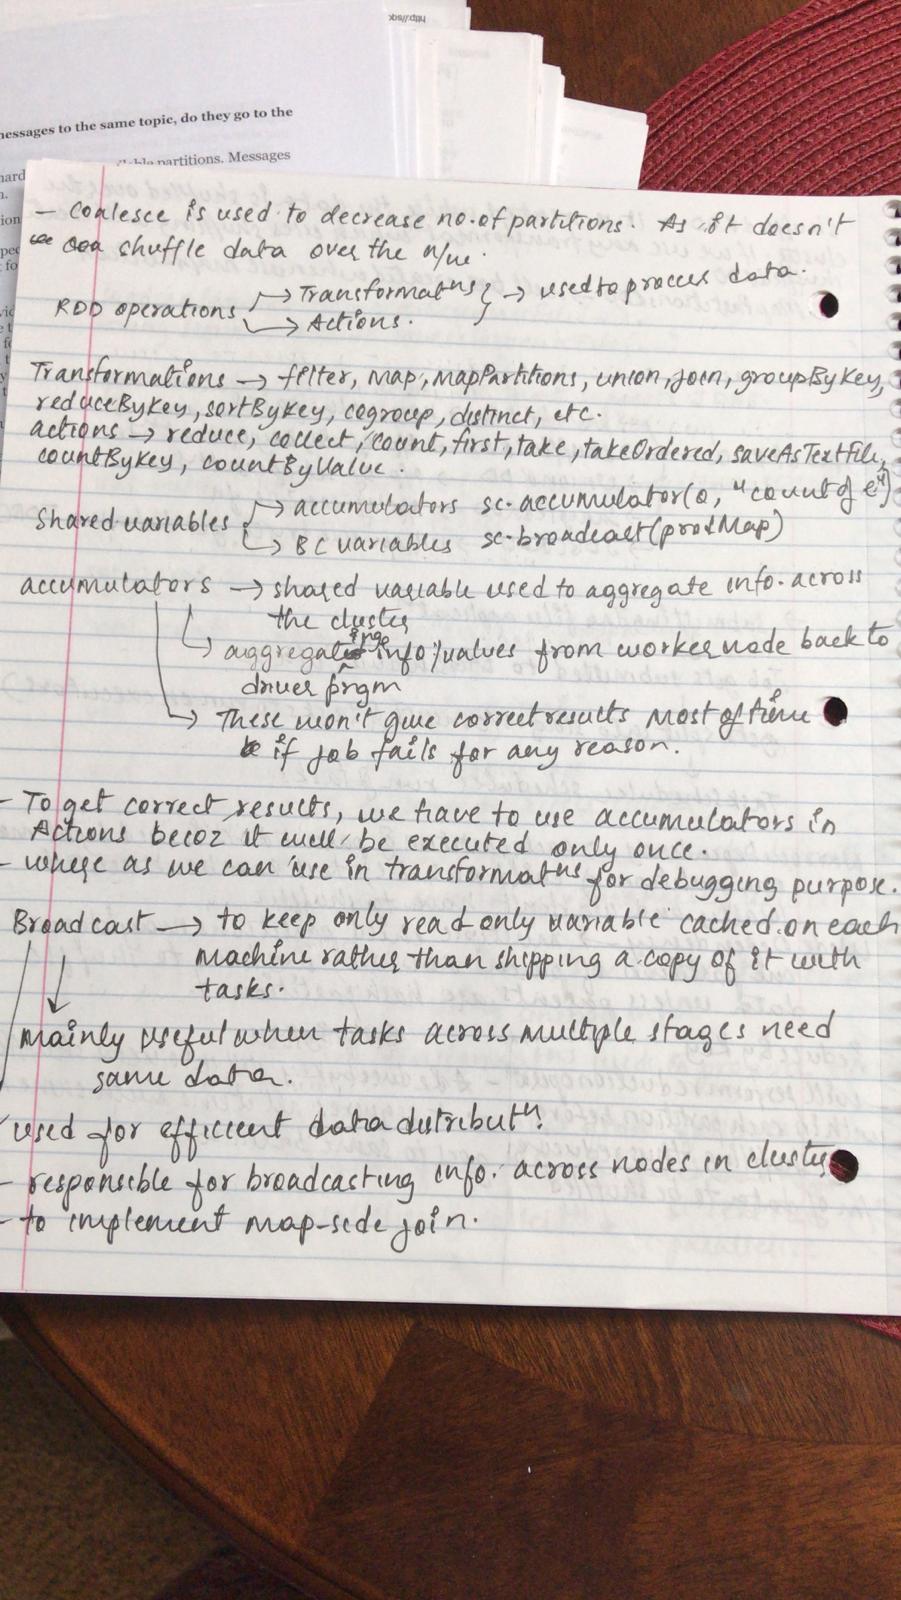 https://
messages to the same topic, do they go to the
partitions. Messages
- Coalesce is used to decrease no. of partitions. As it doesn't
shuffle data over the n/w.
RDD operations → Transformatns } → used to process data.
→ Actions.
Transformations → filter, map, mapPartitions, union, join, groupByKey,
reduceByKey, sortByKey, cogroup, distinct, etc.
actions → reduce, collect, count, first, take, takeOrdered, saveAsTextFile,
countByKey, countByValue.
Shared variables → accumulators sc.accumulator(0, "count of e")
→ BC variables sc.broadcast(prodMap)
accumulators → shared variable used to aggregate info. across
the cluster
→ aggregating info/values from worker node back to
driver prgm
→ These won't give correct results most of time
if job fails for any reason.
- To get correct results, we have to use accumulators in
Actions becoz it will be executed only once.
- where as we can use in transformatns for debugging purpose.
Broadcast → to keep only read only variable cached on each
machine rather than shipping a copy of it with
tasks.
Mainly useful when tasks across multiple stages need
same data.
used for efficient data distributn.
- responsible for broadcasting info. across nodes in cluster
- to implement map-side join.